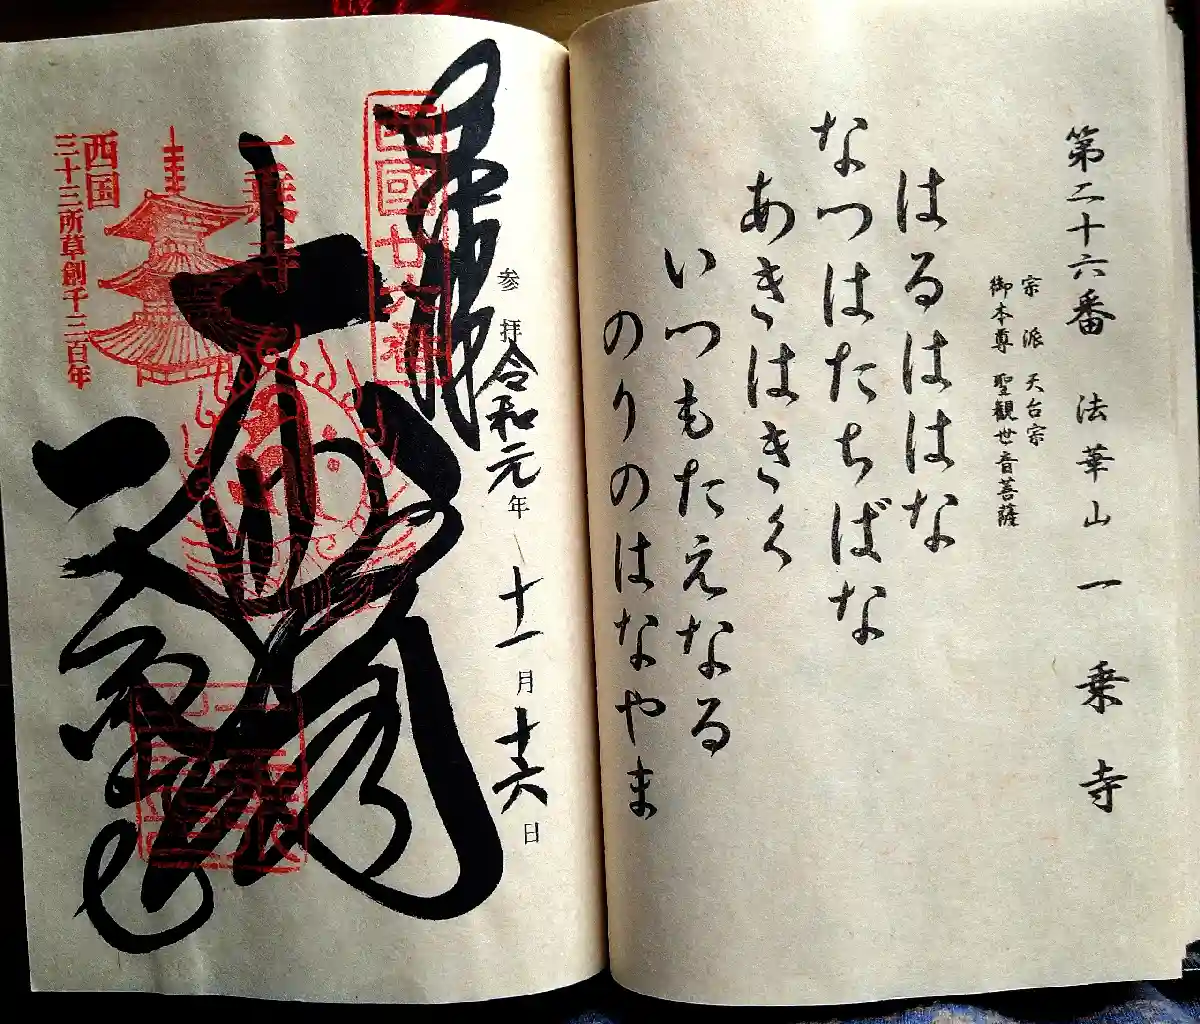 第二十六番 法華山 一乗寺
宗派 天台宗
御本尊 聖観世音菩薩
はるははな
なつはたちばな
あきはきく
いつもたえなる
のりのはなやま
奉拝
西國廿六番
参拝 令和元年 十一月 十六日
一乗寺
西国
三十三所草創千三百年
一乗寺